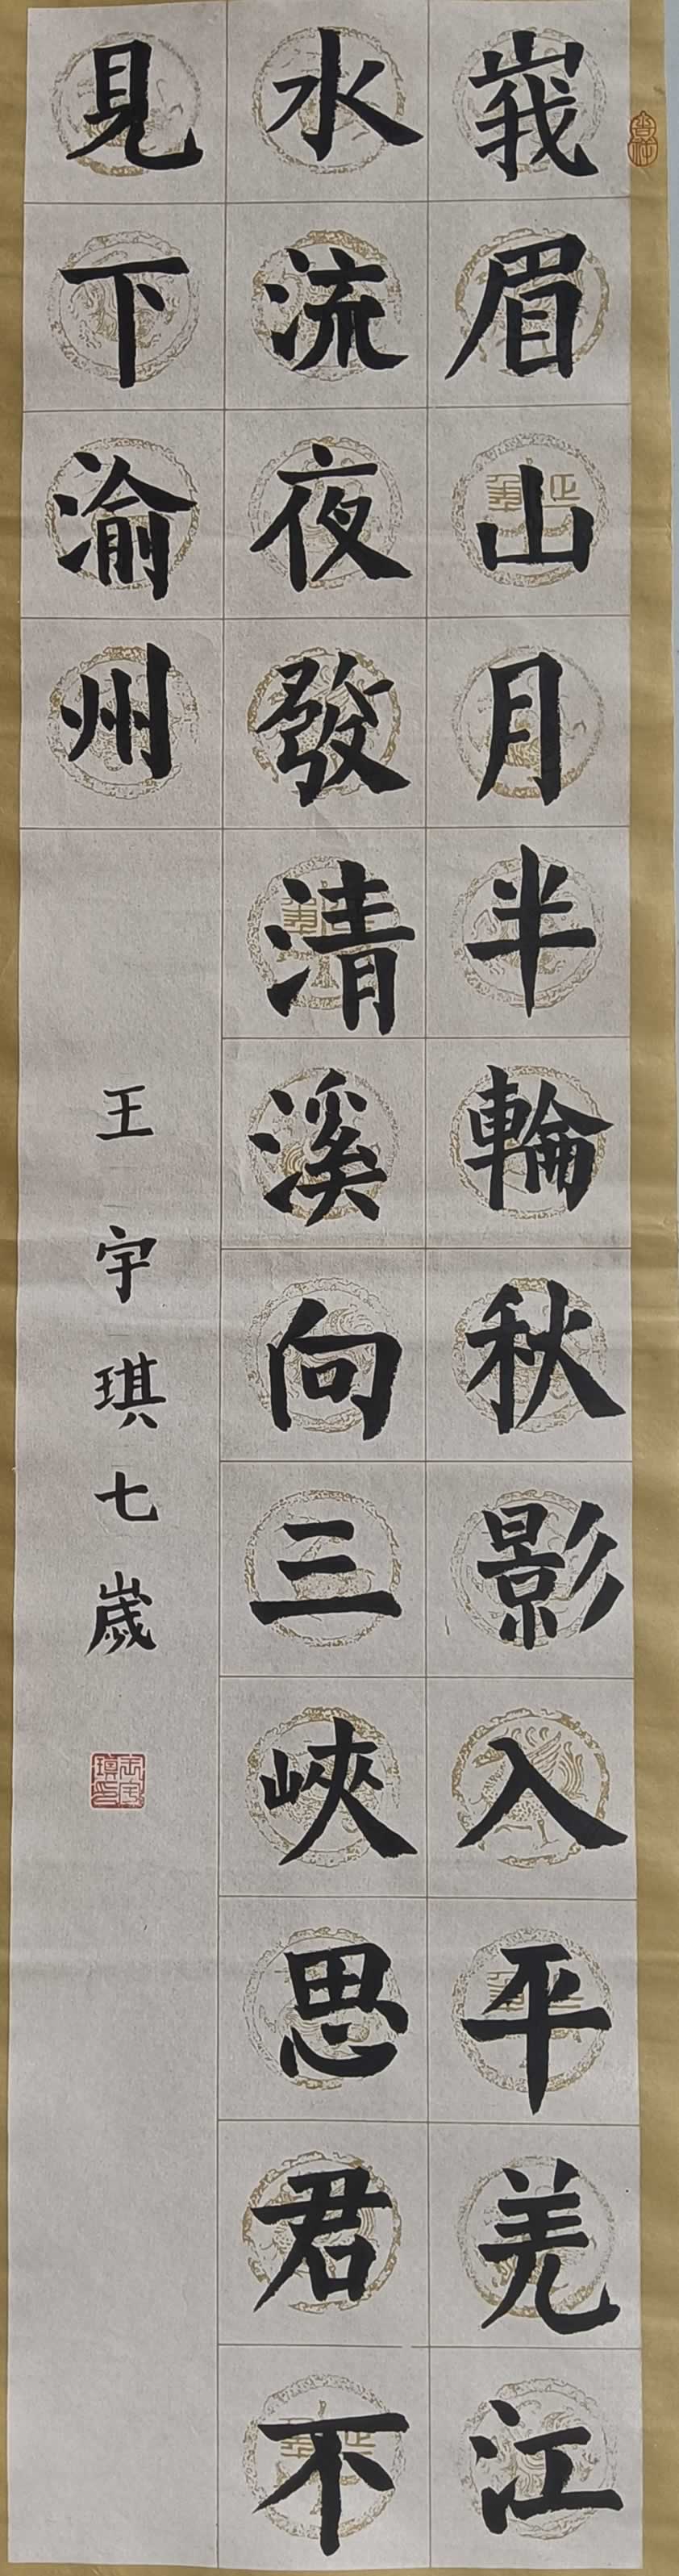 峩眉山月半輪秋影入平羌江
水流夜發清溪向三峽思君不
見下渝州
王宇琪七歲